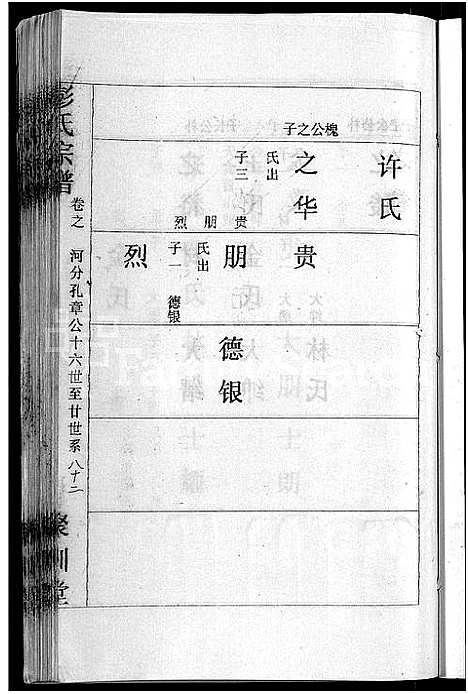 槐公之子
许氏
之华
氏出
子三
贵
朋
烈
贵
朋
氏出
子一
德银
烈
德银
彭氏宗谱
卷之
河分孔章公十六世至廿世系
八十二
聚训堂
林氏